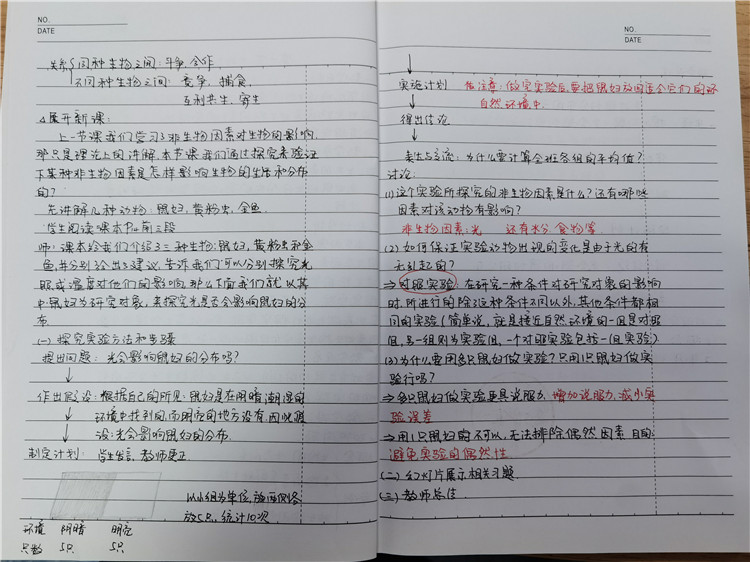 NO.
DATE
关系{同种生物之间:斗争,合作
不同种生物之间: 竞争, 捕食,
互利共生, 寄生
△展开新课:
上一节课我们学习了非生物因素对生物的影响,
那只是理论上的讲解,本节课我们通过探究来验证
下某种非生物因素是怎样影响生物的生活和分布
的?
先讲解几种动物: 鼠妇, 黄粉虫, 金鱼
学生阅读课本P14前三段
师: 课本给我们介绍了三种生物:鼠妇,黄粉虫和金
鱼,并分别给出了建议,告诉我们可以分别探究光
照或温度对他们的影响,那么下面我们就以其
中鼠妇为研究对象,来探究光是否会影响鼠妇的分
布.
(一) 探究实验方法和步骤
提出问题: 光会影响鼠妇的分布吗?
作出假设: 根据自己的所见:鼠妇是在阴暗潮湿的
环境中找到的,而明亮的地方没有,因此假
设:光会影响鼠妇的分布.
制定计划: 学生发言,教师更正
以小组为单位,放两侧各
放5只,统计10次.
环境 阴暗 明亮
只数 5只 5只
NO.
DATE
实施计划 告注意:做完实验后,要把鼠妇放回适合它们的环
自然环境中.
得出结论
表达与交流: 为什么要计算全班各组的平均值?
讨论:
(1)这个实验所探究的非生物因素是什么?还有哪些
因素对该动物有影响?
非生物因素:光 还有水分 食物等
(2) 如何保证实验动物出现的变化是由于光的有
无引起的?
⇒对照实验: 在研究一种条件对研究对象的影响
时,所进行的除这种条件不同以外,其他条件都相
同的实验(简单说,就是接近自然环境的一组是对照
组,另一组则为实验组,一个对照实验包括一组实验)
(3)为什么要用多只鼠妇做实验?只用1只鼠妇做实
验行吗?
⇒多只鼠妇做实验更具说服力,增加说服力,减小实
验误差
⇒用1只鼠妇时不可以,无法排除偶然因素 目的:
避免实验的偶然性
(二) 幻灯片展示相关习题.
(三) 教师总结